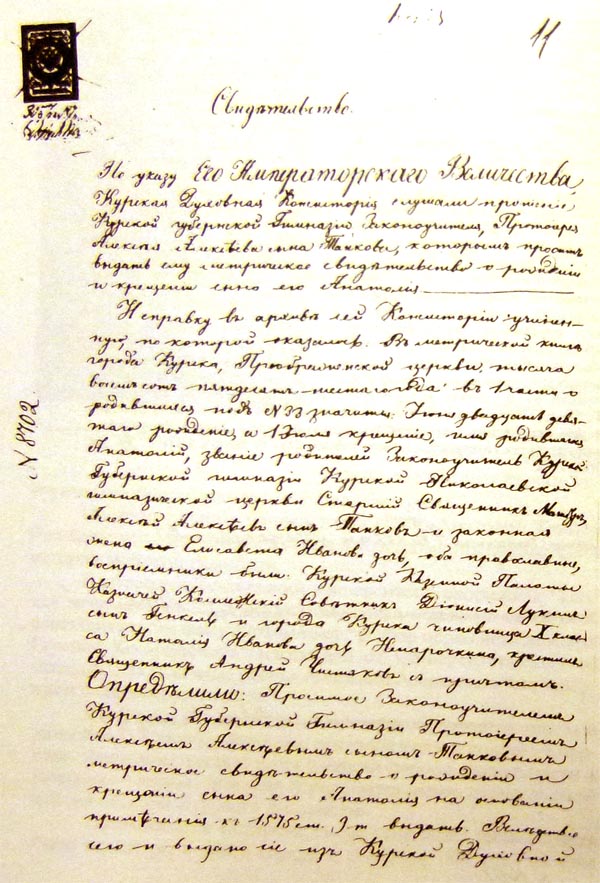 11
Свидѣтельство.
По указу Его Императорскаго Величества,
Курская Духовная Консисторія слушали прошеніе
Курской губернской Гимназіи Законоучителя, Протоіерея
Алексія Алексѣева сына Танкова, которымъ проситъ
выдать ему метрическое свидѣтельство о рожденіи
и крещеніи сына его Анатолія
На справку въ архивѣ сей Консисторіи учинен-
ную, по которой оказалось: Въ метрической книгѣ
города Курска, Преображенской церкви, тысяча
восемьсотъ пятдесятъ шестаго года въ 1 части о
родившихся подъ N 33 значится: Іюня двадцать девя-
таго рожденіе, а 1 Іюля крещеніе, имя родившагося
Анатолій, званіе родителей Законоучитель Курской
Губернской гимназіи Курской Николаевской
гимназической церкви Старшій Священникъ Магистръ
Алексѣй Алексѣевъ сынъ Танковъ и законная
жена Елисавета Иванова дочь, оба православные,
воспріемники были: Курской Казенной Палаты
Казначей Коллежскій Совѣтникъ Діонисій Лукинъ
сынъ и города Курска чиновница X клас-
са Наталія Иванова дочь крестилъ
Священникъ Андрей съ причтомъ.
Опредѣлили: Просимое Законоучителемъ
Курской Губернской Гимназіи Протоіереемъ
Алексѣемъ Алексѣевымъ сыномъ Танковымъ
метрическое свидѣтельство о рожденіи и
крещеніи сына его Анатолія на основаніи
примѣчанія къ 1575 ст. выдать. Вслѣдствіе
сего и выдано сіе изъ Курской Духовной
N 8702